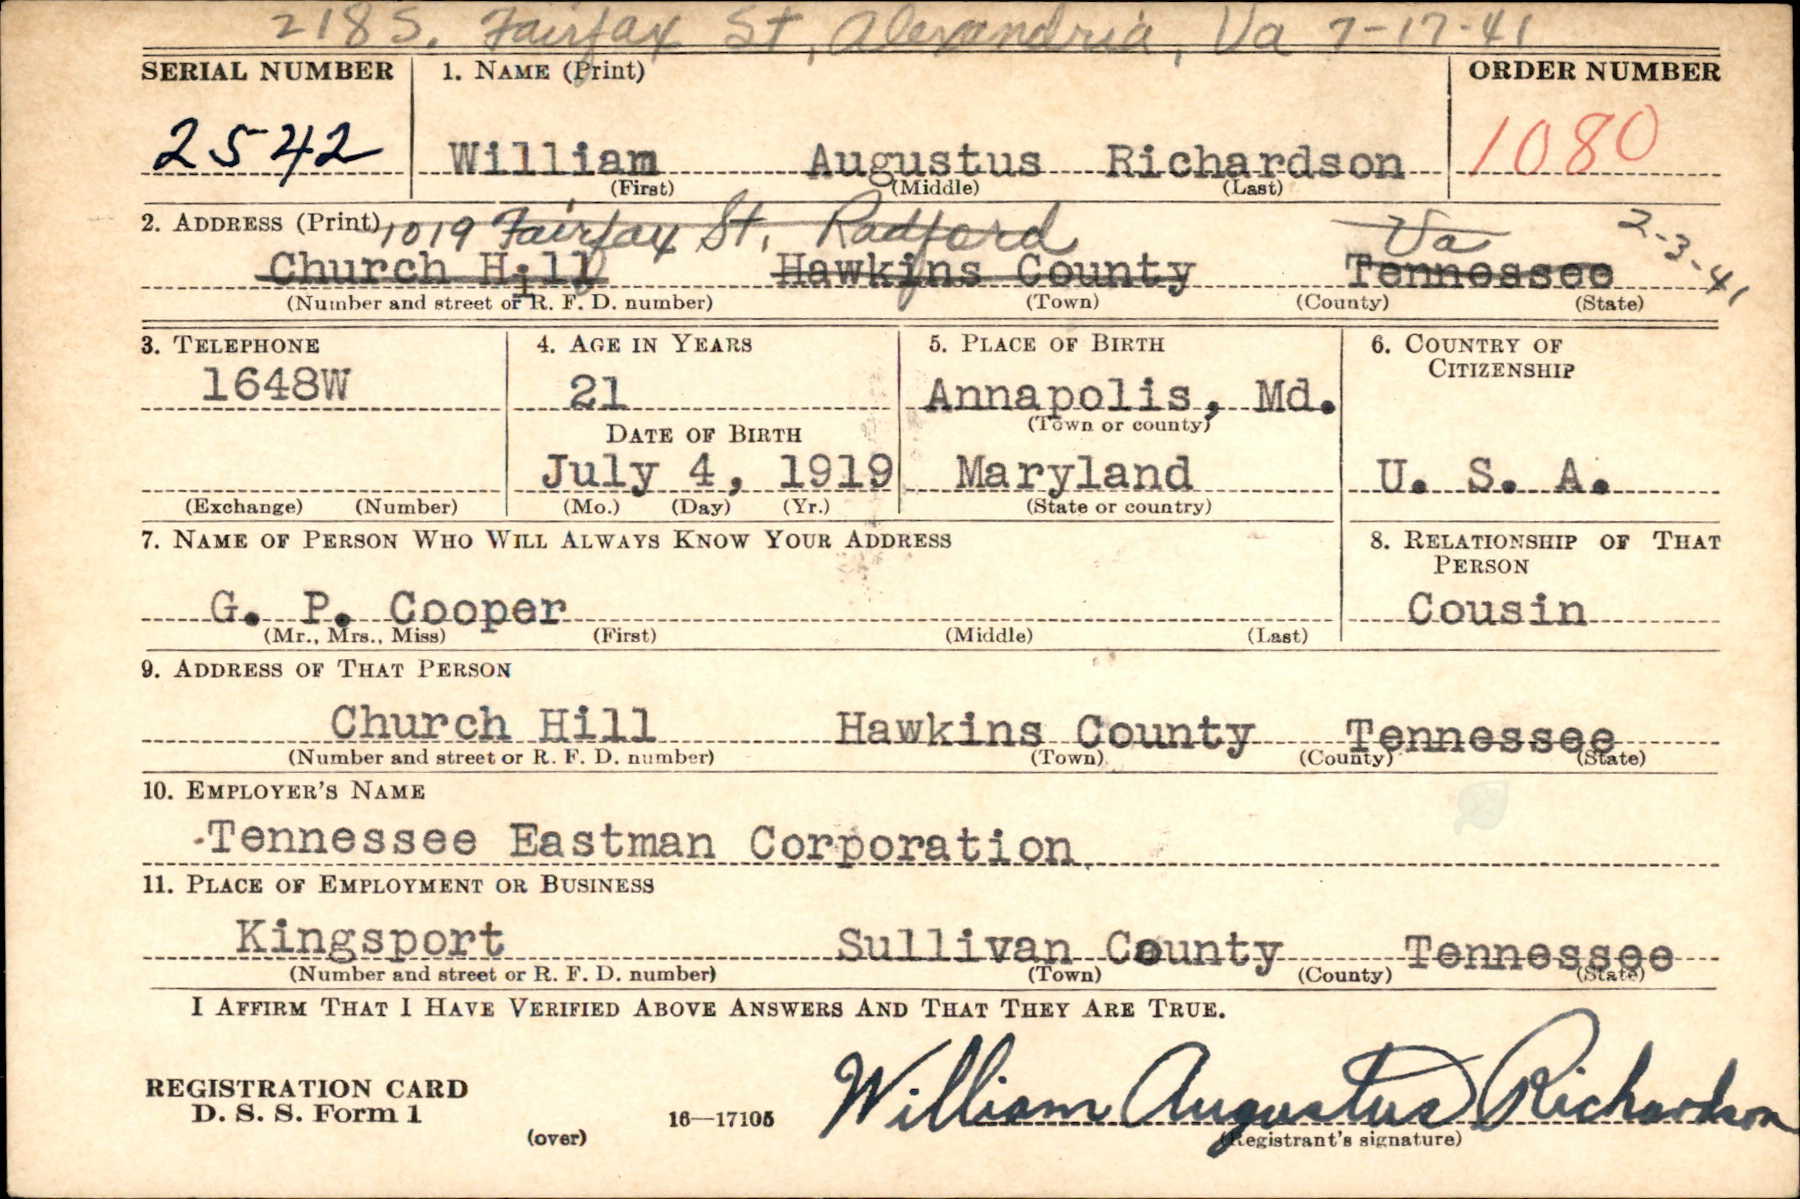 218 S. Fairfax St, Alexandria, Va 7-17-41
SERIAL NUMBER 1. NAME (Print) ORDER NUMBER
2542 William Augustus Richardson 1080
(First) (Middle) (Last)
2. ADDRESS (Print) 1019 Fairfax St. Radford Va 2-3-41
Church Hill Hawkins County Tennessee
(Number and street or R. F. D. number) (Town) (County) (State)
3. TELEPHONE 4. AGE IN YEARS 5. PLACE OF BIRTH 6. COUNTRY OF
CITIZENSHIP
1648W 21 Annapolis, Md.
(Town or county)
DATE OF BIRTH
July 4, 1919 Maryland U. S. A.
(Exchange) (Number) (Mo.) (Day) (Yr.) (State or country)
7. NAME OF PERSON WHO WILL ALWAYS KNOW YOUR ADDRESS 8. RELATIONSHIP OF THAT
PERSON
G. P. Cooper Cousin
(Mr., Mrs., Miss) (First) (Middle) (Last)
9. ADDRESS OF THAT PERSON
Church Hill Hawkins County Tennessee
(Number and street or R. F. D. number) (Town) (County) (State)
10. EMPLOYER'S NAME
Tennessee Eastman Corporation
11. PLACE OF EMPLOYMENT OR BUSINESS
Kingsport Sullivan County Tennessee
(Number and street or R. F. D. number) (Town) (County) (State)
I AFFIRM THAT I HAVE VERIFIED ABOVE ANSWERS AND THAT THEY ARE TRUE.
William Augustus Richardson
REGISTRATION CARD
D. S. S. Form 1 16—17105
(over) (Registrant's signature)